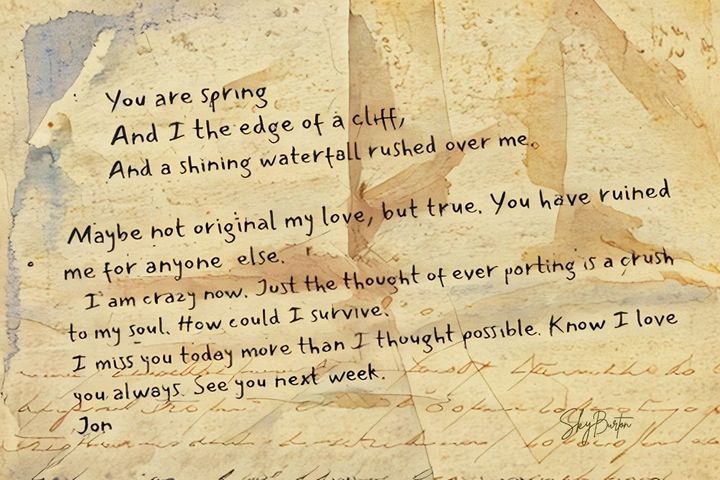 You are spring
And I the edge of a cliff,
And a shining waterfall rushed over me.
Maybe not original my love, but true. You have ruined
me for anyone else.
I am crazy now. Just the thought of ever porting is a crush
to my soul. How could I survive.
I miss you today more than I thought possible. Know I love
you always. See you next week.
Jon
Sky Burton